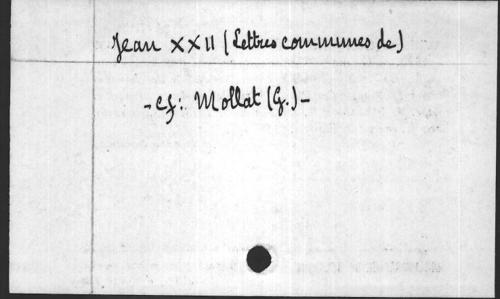 Jean XXII (Lettres communes de)
- cf: Mollat (G.) -